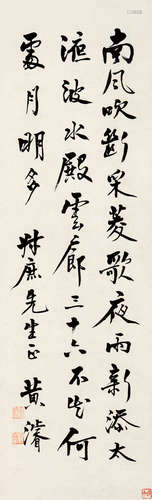 南风吹斷采菱歌夜雨新添太
液波水殿雲廊三十六不知何
處月明多 尌庶先生正 黄濬